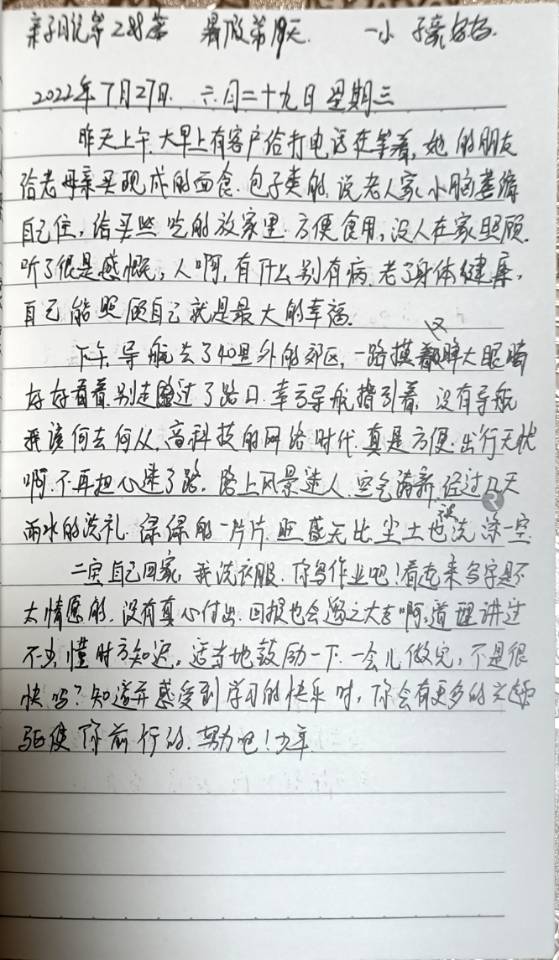 亲子日记第288篇 暑假第19天. 一小 子豪妈妈.
2022年7月27日. 六月二十九日 星期三
昨天上午.大早上有客户给打电话在等着,她的朋友
给老母亲买现成的面食.包子类的,说老人家小脑萎缩
自己住,给买些吃的放家里.方便食用,没人在家照顾.
听了很是感慨,人啊,有什么别有病.老了身体健康,
自己能照顾自己就是最大的幸福.
下午,导航去了40里外的郊区,一路摸 又睁大眼睛
好好看着.别走过了路口.幸亏导航指引着,没有导航
我该何去何从.高科技的网络时代.真是方便.出行无忧
啊.不再担心迷了路.路上风景迷人.空气清新.经过几天
雨水的洗礼.绿绿的一片片.照蓝天比.尘土也被洗涤一空.
二宝自己回家,我洗衣服.你写作业吧!看起来多字是不
太情愿的.没有真心付出.回报也会逊之大吉啊,道理讲过
不少.懂时方知迟.适当地鼓励一下.一会儿做完,不是很
快吗?知道并感受到学习的快乐时,你会有更多的兴趣
驱使你前行的.努力吧!少年